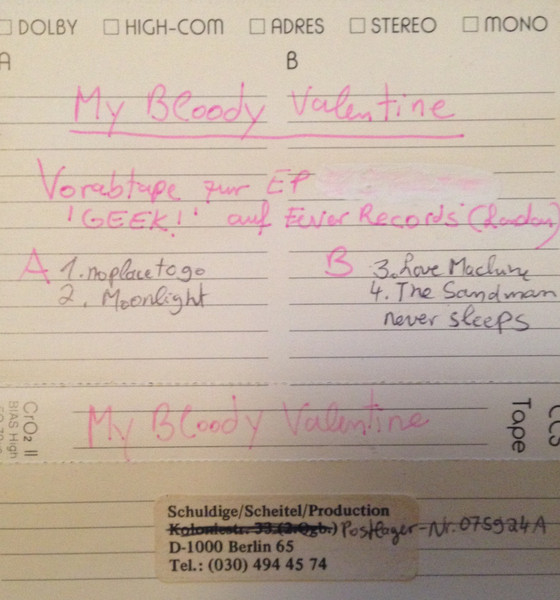 DOLBY HIGH-COM ADRES STEREO MONO
A B
My Bloody Valentine
Vorabtape zur EP
'GEEK!' auf Fever Records (London)
A 1. no place to go
2. Moonlight
B 3. Love Machine
4. The Sandman
never sleeps
CrO₂ II
BIAS High
My Bloody Valentine
Tape
Schuldige/Scheitel/Production
Koloniestr. 33 (2.Qgb.) Postlager-Nr. 075924 A
D-1000 Berlin 65
Tel.: (030) 494 45 74